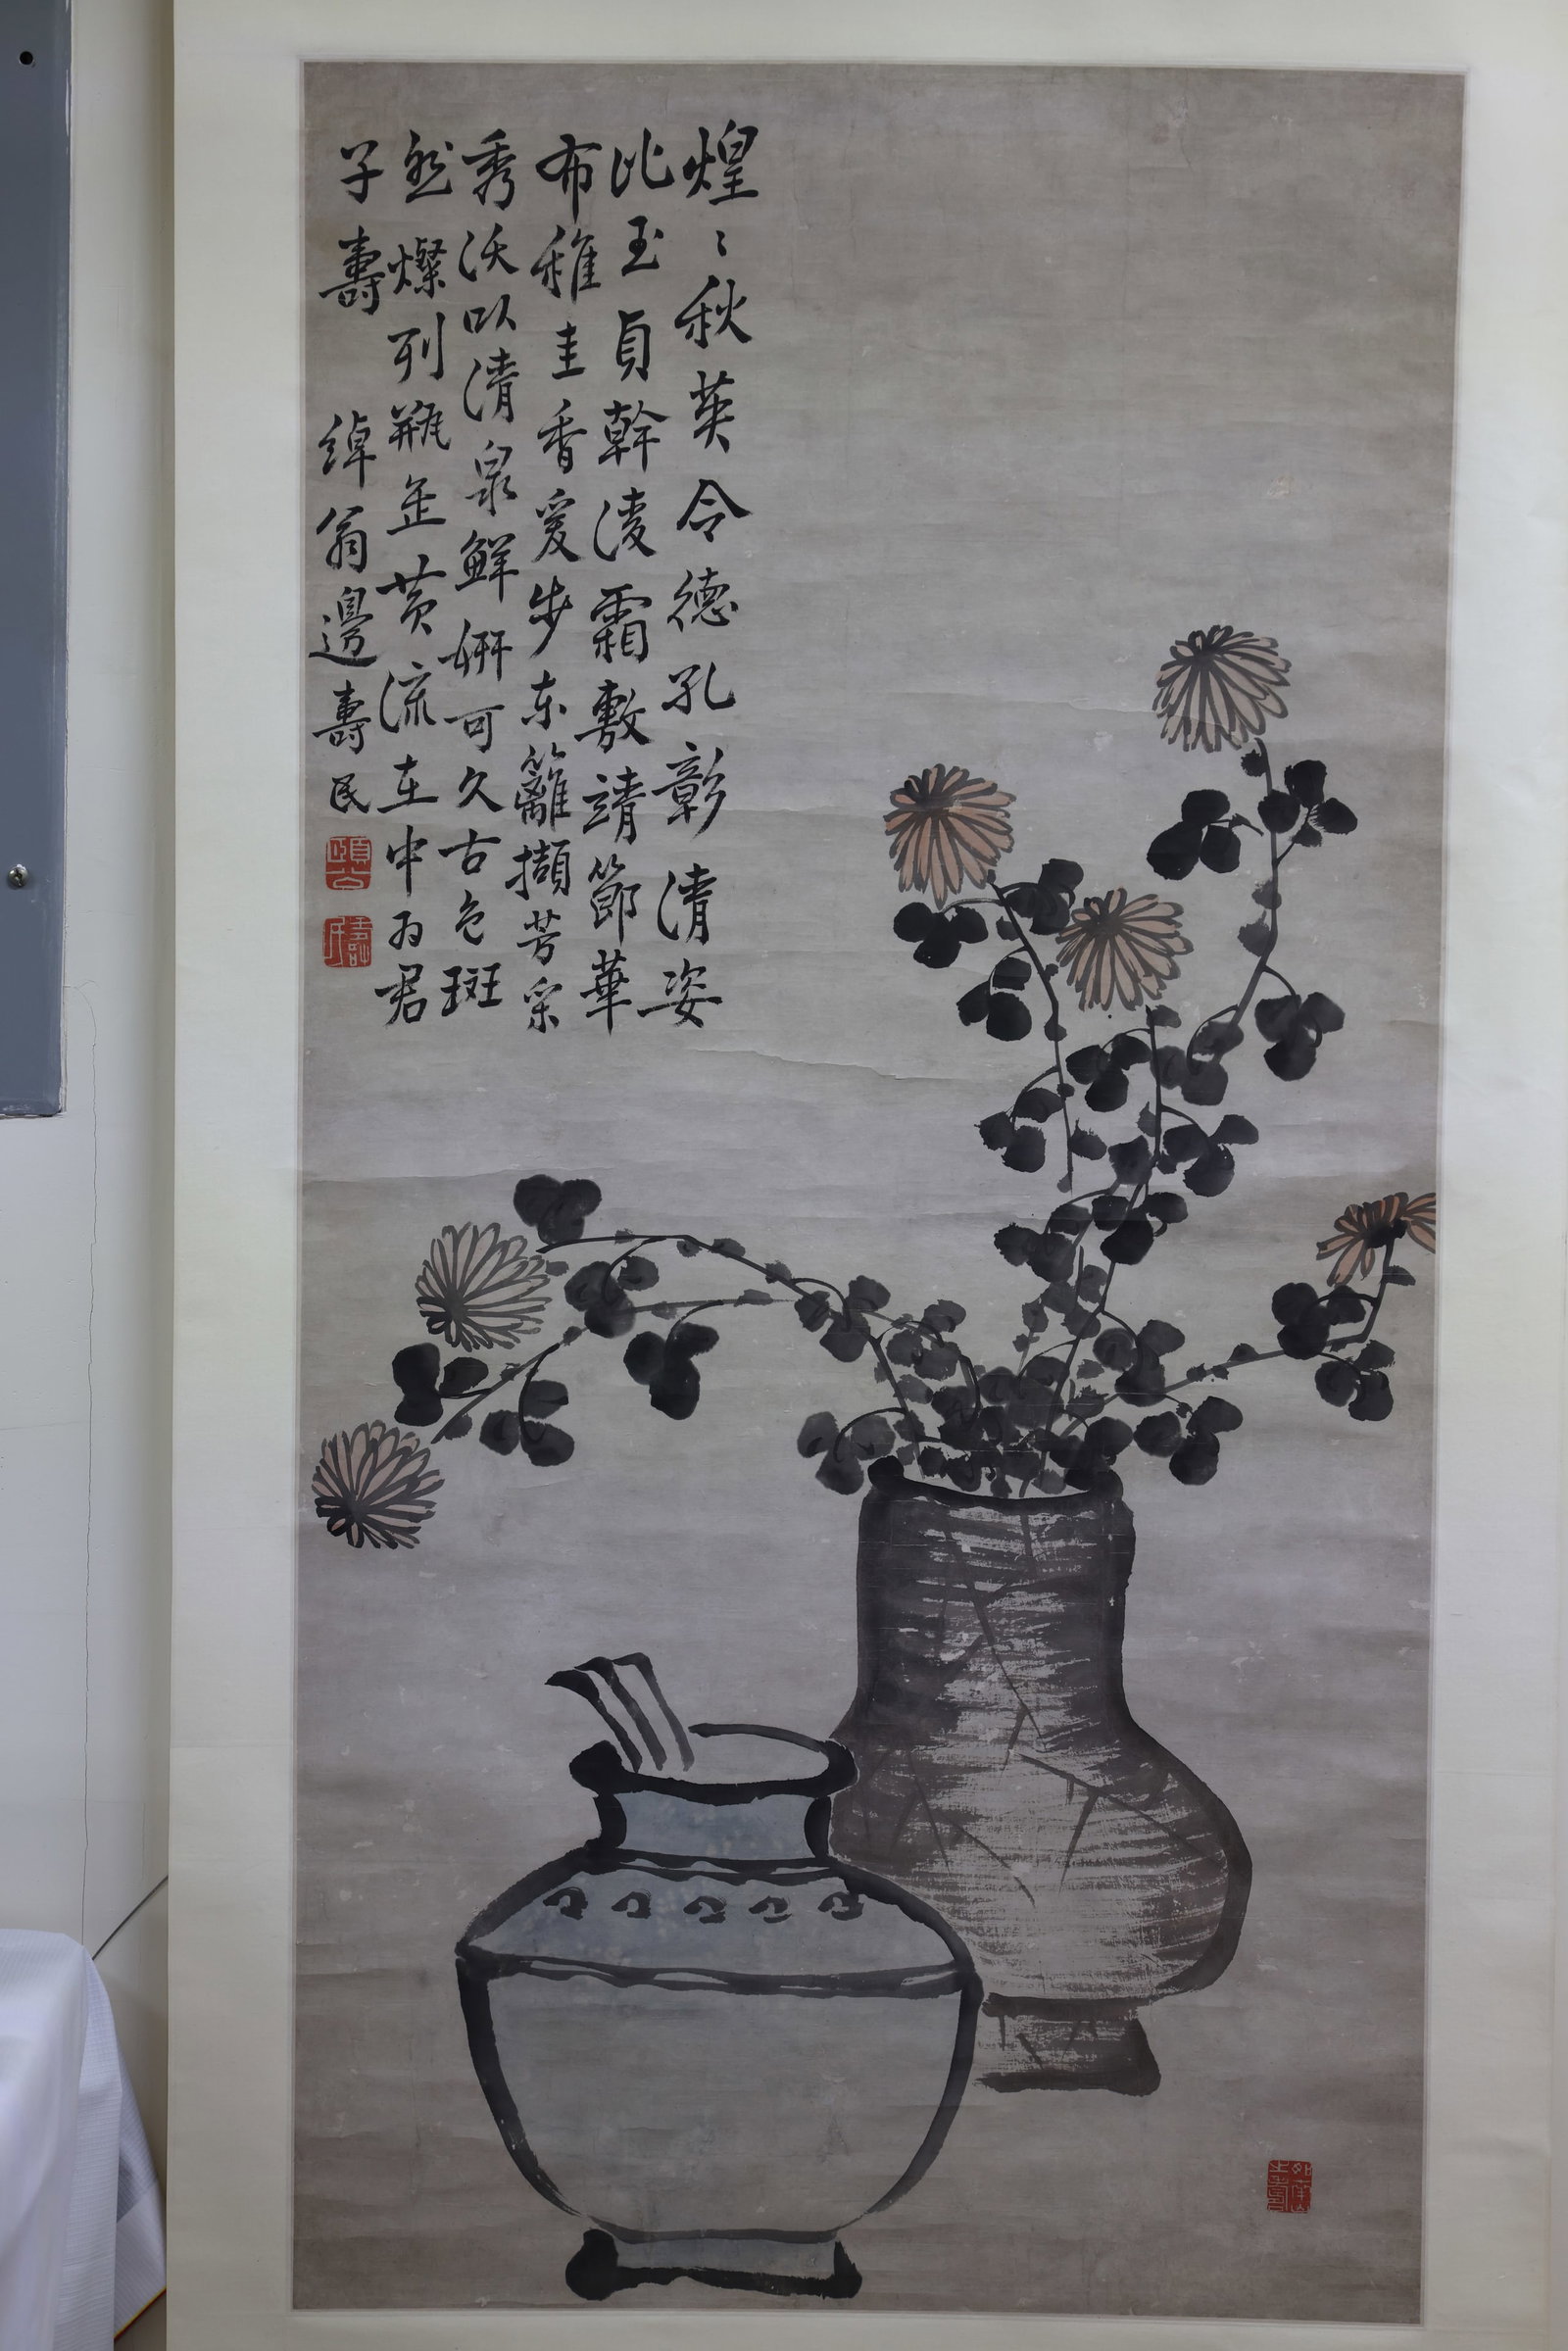 煌〻秋英令德孔彰清姿
比玉貞幹凌霜敷靖節華
布稚圭香爰步东籬擷芳采
秀沃以清泉鮮妍可久古色斑
然燦列瓶罍黄流在中为君
子壽 綽翁邊壽民
頤公
壽民